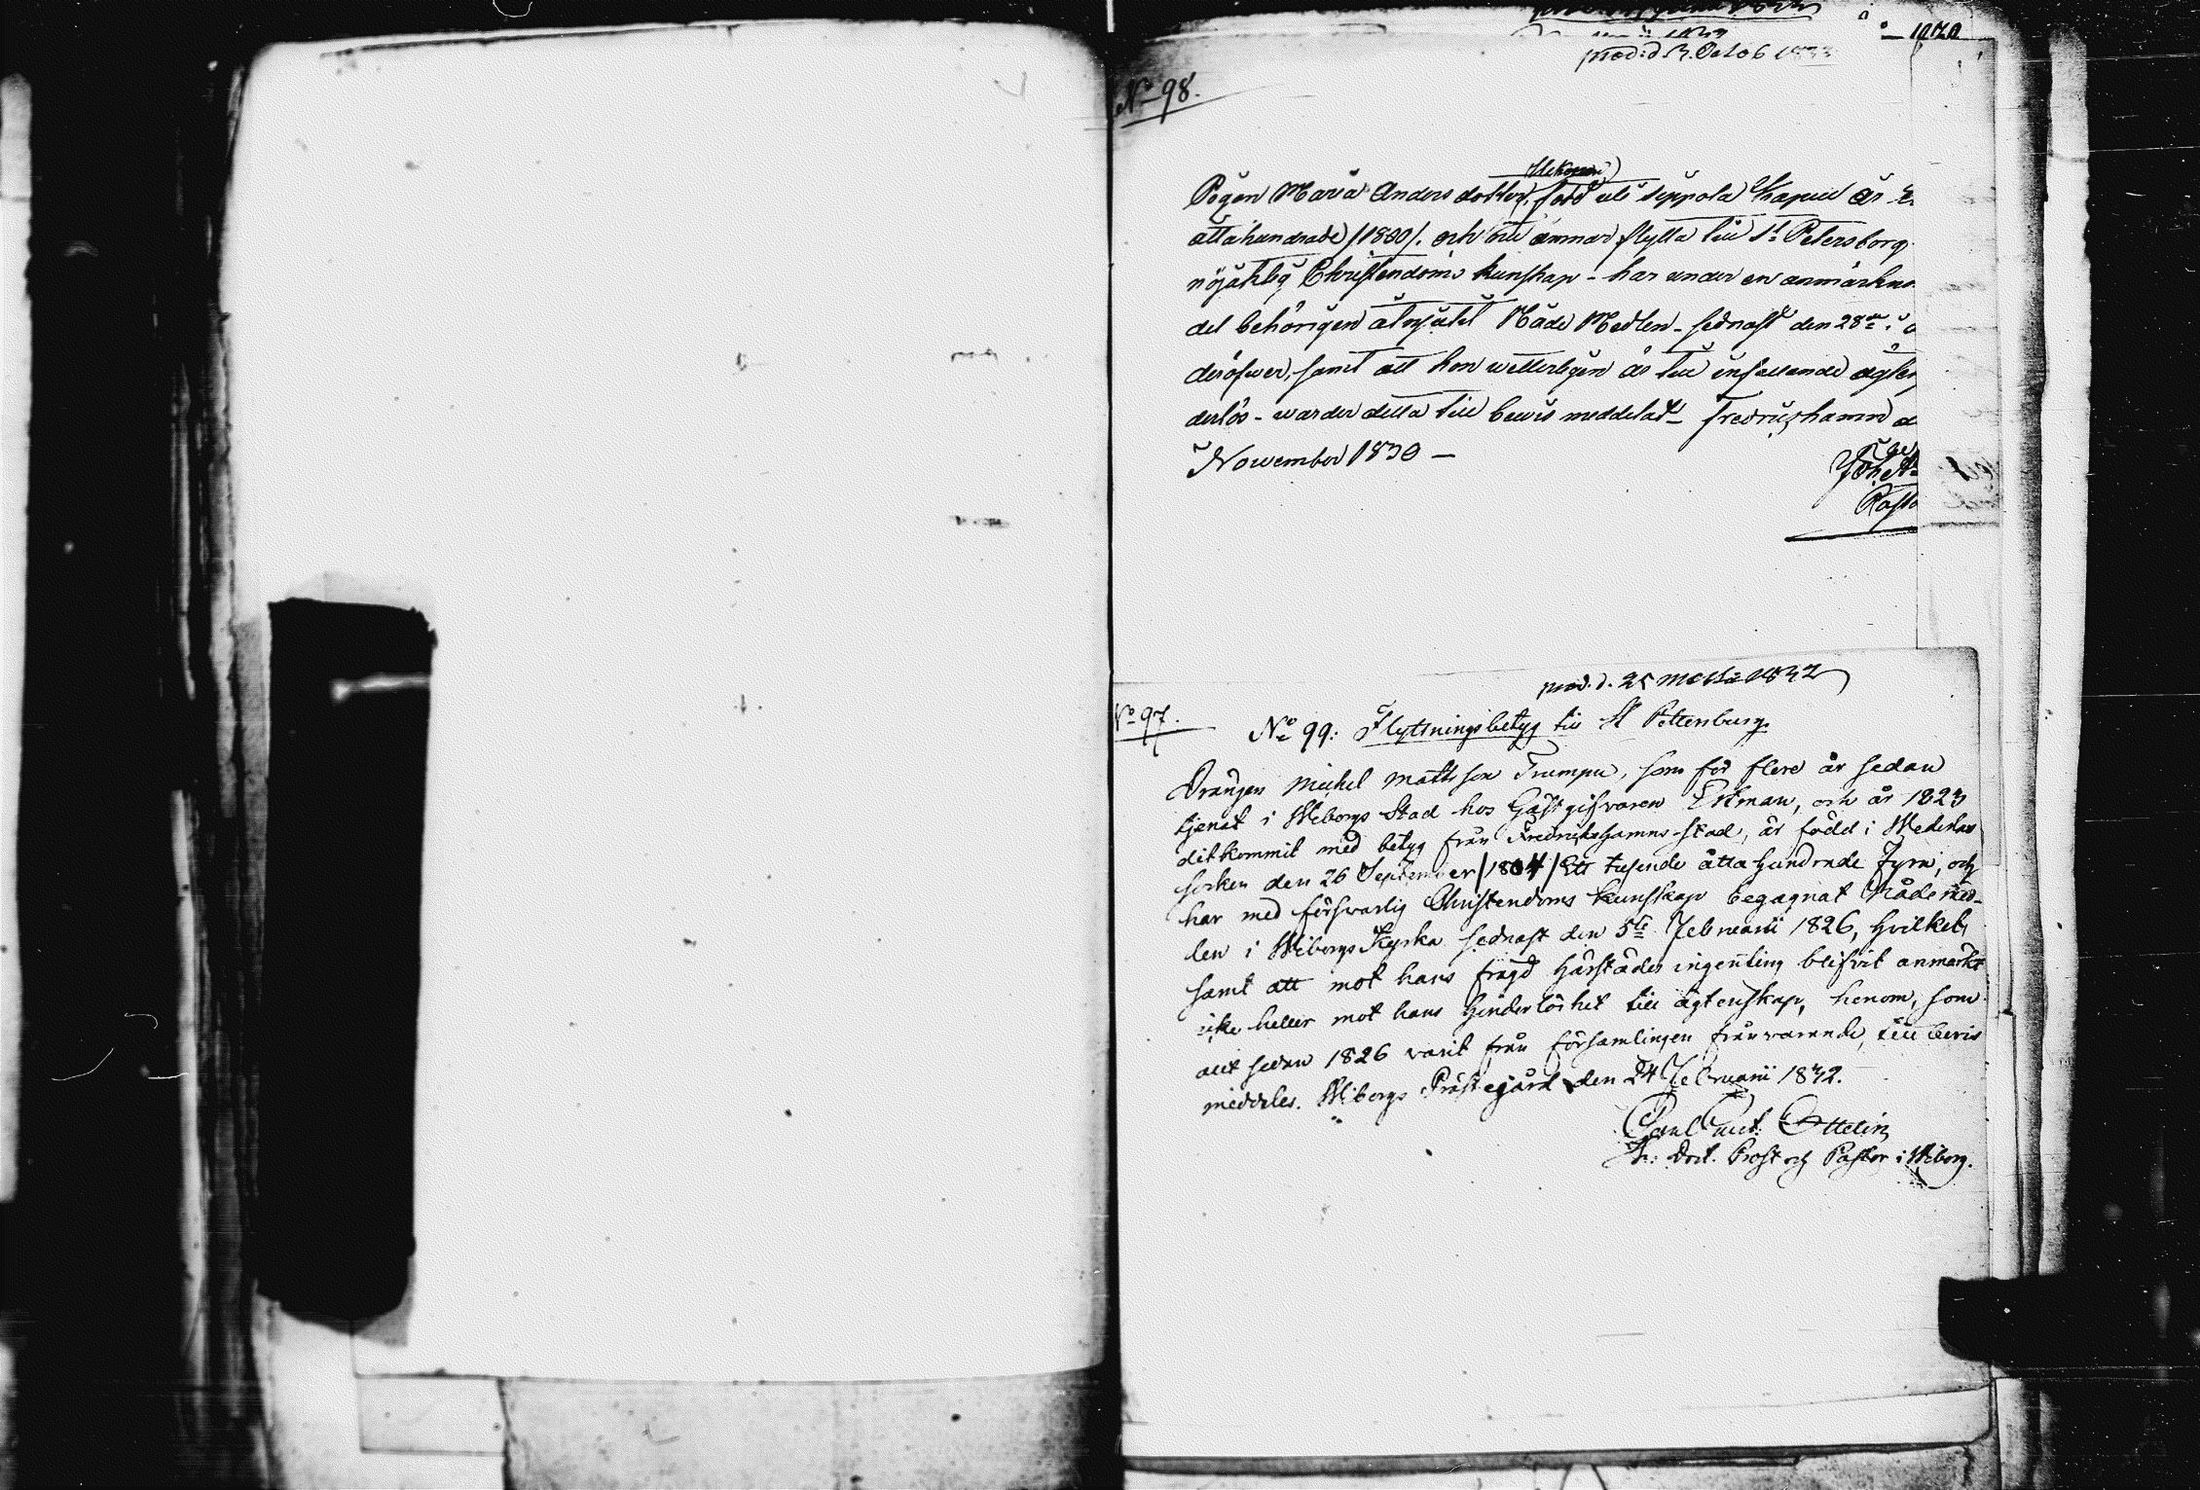 prod: d. 3. Octob 1833
No 98.
Pigan Maria Andersdotter, född uti Sippola Kapell år
åttahundrade /1800/. och till ämnar flytta till St Petersborg
nöjaktig Christendoms kunskap - har under en anmärkne
del behörigen åtnjutit Nåde Medlen - sednast den 28de
deröfver, samt att hon wetterligen är till infallande ägten
derlös - warder detta till bewis meddelat - Fredrikshamn
November 1830 -
Joh
Pasto
prod. d. 25 Martii 1832
No 97.
No 99: Flyttningsbetyg till St Pettersburg
Drängen Michel Mattsson Trumpu, som för flere år sedan
tjenat i Wiborgs Stad hos Gästgifvaren Estman, och år 1823
ditkommit med betyg från Fredrikshamns stad, är född i Wederlax
socken den 26 September /1804/ Ett tusende åtta hundrade fyra, och
har med försvarlig Christendoms kunskap begagnat Nådemed-
len i Wiborgs Kyrka sednast den 5te Februarii 1826, hvilket,
samt att mot hans frägd härstädes ingenting blifvit anmärkt
icke heller mot hans hinderlöshet till ägtenskap, henom, som
allt sedan 1826 varit från församlingen frånvarande, till bevis
meddeles. Wiborgs Prästegård den 24 Februarii 1832.
Carl Gust: Ottelin
Th: Doct. Prost och Pastor i Wiborg.